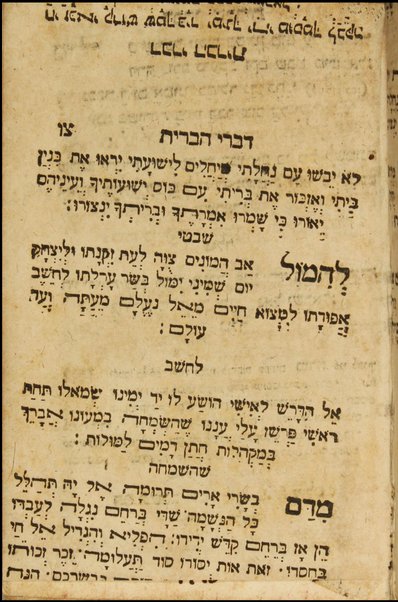 דברי הברית
צו
לא יבשו עם נחלתי מיחלים לישועתי יראו את בנין
ביתי ואזכור את בריתי עם כוס ישועותיך ועיניהם
יאורו כי שמרו אמרתך ובריתך ינצורו:
שבטי
להמול אב המונים צוה לעת זקנתו וליצחק
יום שמיני ימול בשר ערלתו לחשב
אפודתו למצוא חיים מאל נעלם מעתה ועד
עולם:
לחשב
אל הדרש לאישי הושע לו יד ימינו שמאלו תחת
ראשי פרשו עלי עננו שהשמחה במעונו אברך
במקהלות חתן דמים למולות:
שהשמחה
מדם בשרי ארים תרומה אל יה תהלל
כל הנשמה שדי ברחם נגלה לעבדו
הן אז ברחם קדש ידידו הפליא והגדיל אל חי
בחסדו זאת אות יסודו סוד תעלומה זכר זכותו